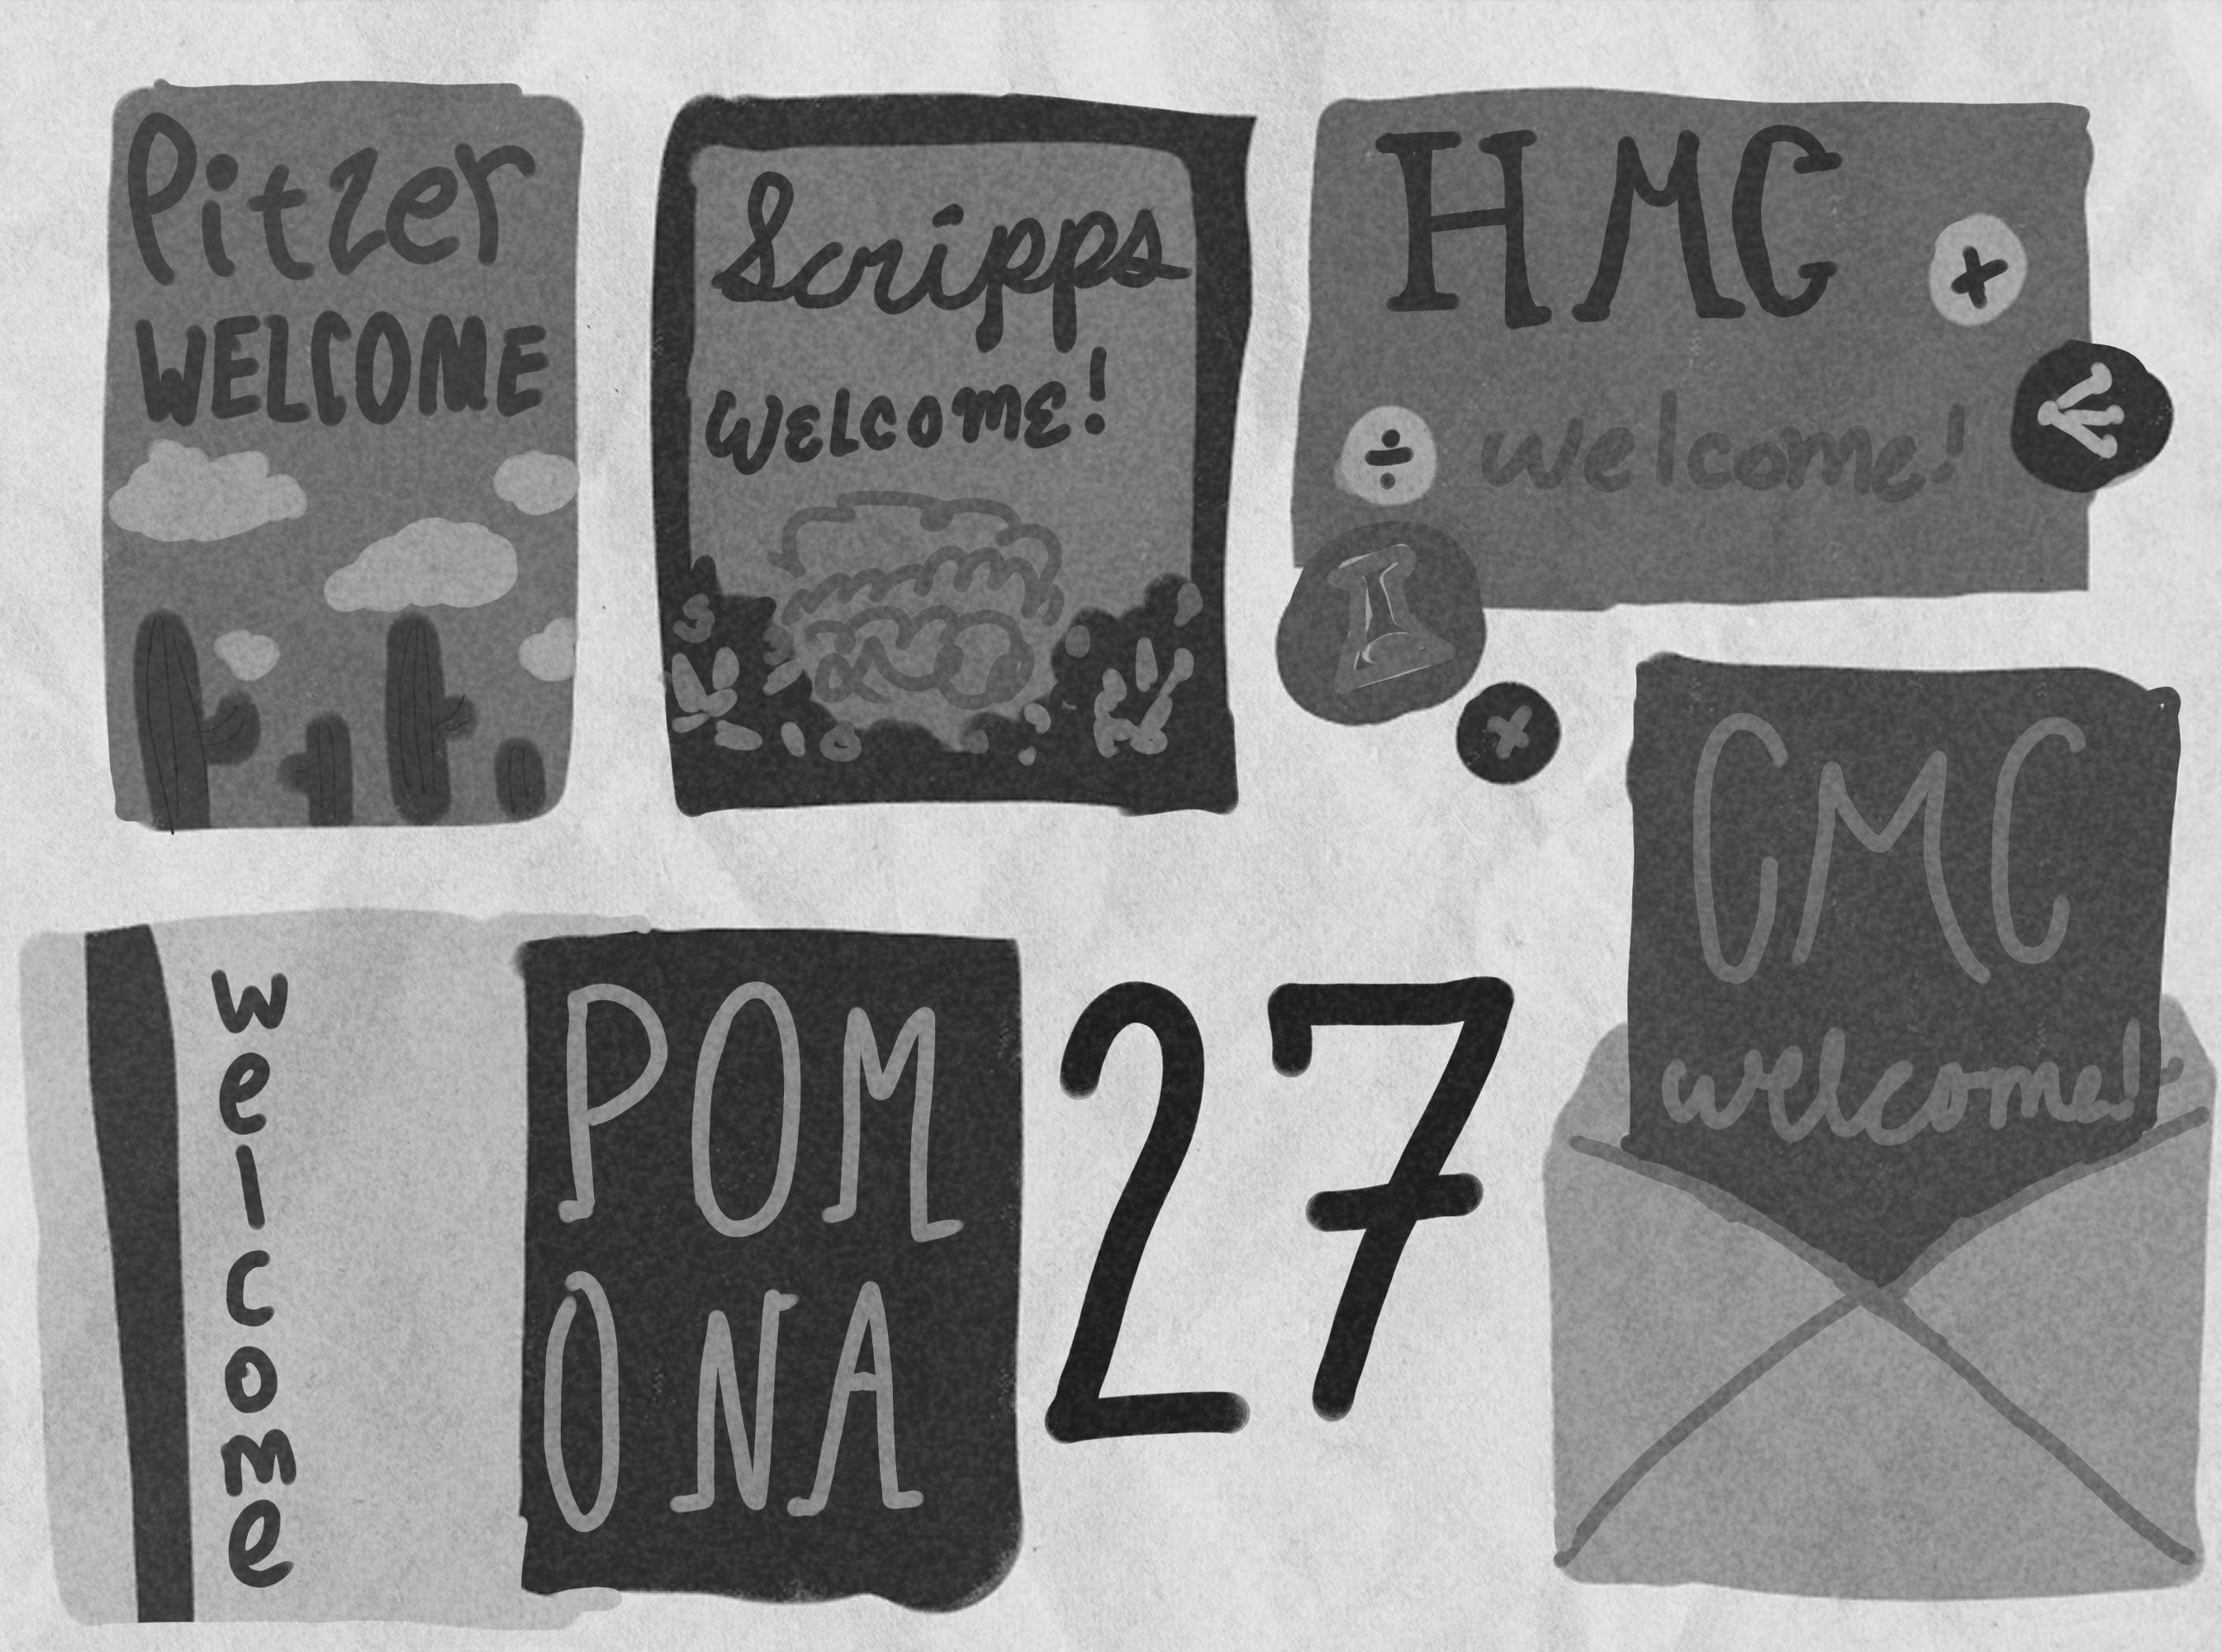 Pitzer
WELCOME
Scripps
WELCOME!
HMC
+
÷
welcome!
×
CMC
welcome!
welcome
POM
ONA
27